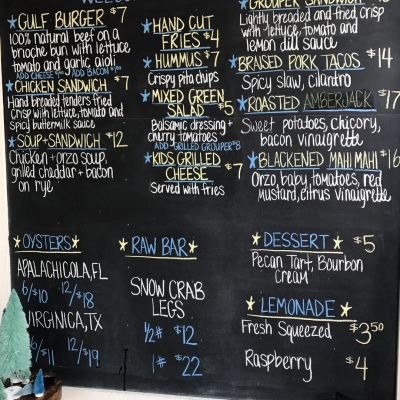 GULF BURGER $7
100% natural beef on a
brioche bun with lettuce
tomato and garlic aioli
CHICKEN SANDWICH $7
Hand breaded tenders fried
crisp with lettuce, tomato and
spicy buttermilk sauce
SOUP+SANDWICH $12
Chicken + orzo soup,
grilled cheddar + bacon
on rye
HAND CUT
FRIES $4
HUMMUS $7
Crispy pita chips
MIXED GREEN
SALAD $5
Balsamic dressing +
cherry tomatoes
ADD GRILLED GROUPER $8
KIDS GRILLED
CHEESE $7
Served with fries
GROUPER SANDWICH
Lightly breaded and fried, crisp
with lettuce, tomato and
lemon dill sauce
BRAISED PORK TACOS $14
Spicy slaw, cilantro
ROASTED AMBERJACK $17
Sweet potatoes, chicory,
bacon vinaigrette
BLACKENED MAHI MAHI $16
Orzo, baby tomatoes, red
mustard, citrus vinaigrette
OYSTERS
APALACHICOLA, FL
6/$10 12/$18
VIRGINICA, TX
6/$11 12/$19
RAW BAR
SNOW CRAB
LEGS
1/2# $12
1# $22
DESSERT $5
Pecan Tart, Bourbon
Cream
LEMONADE
Fresh Squeezed $3.50
Raspberry $4